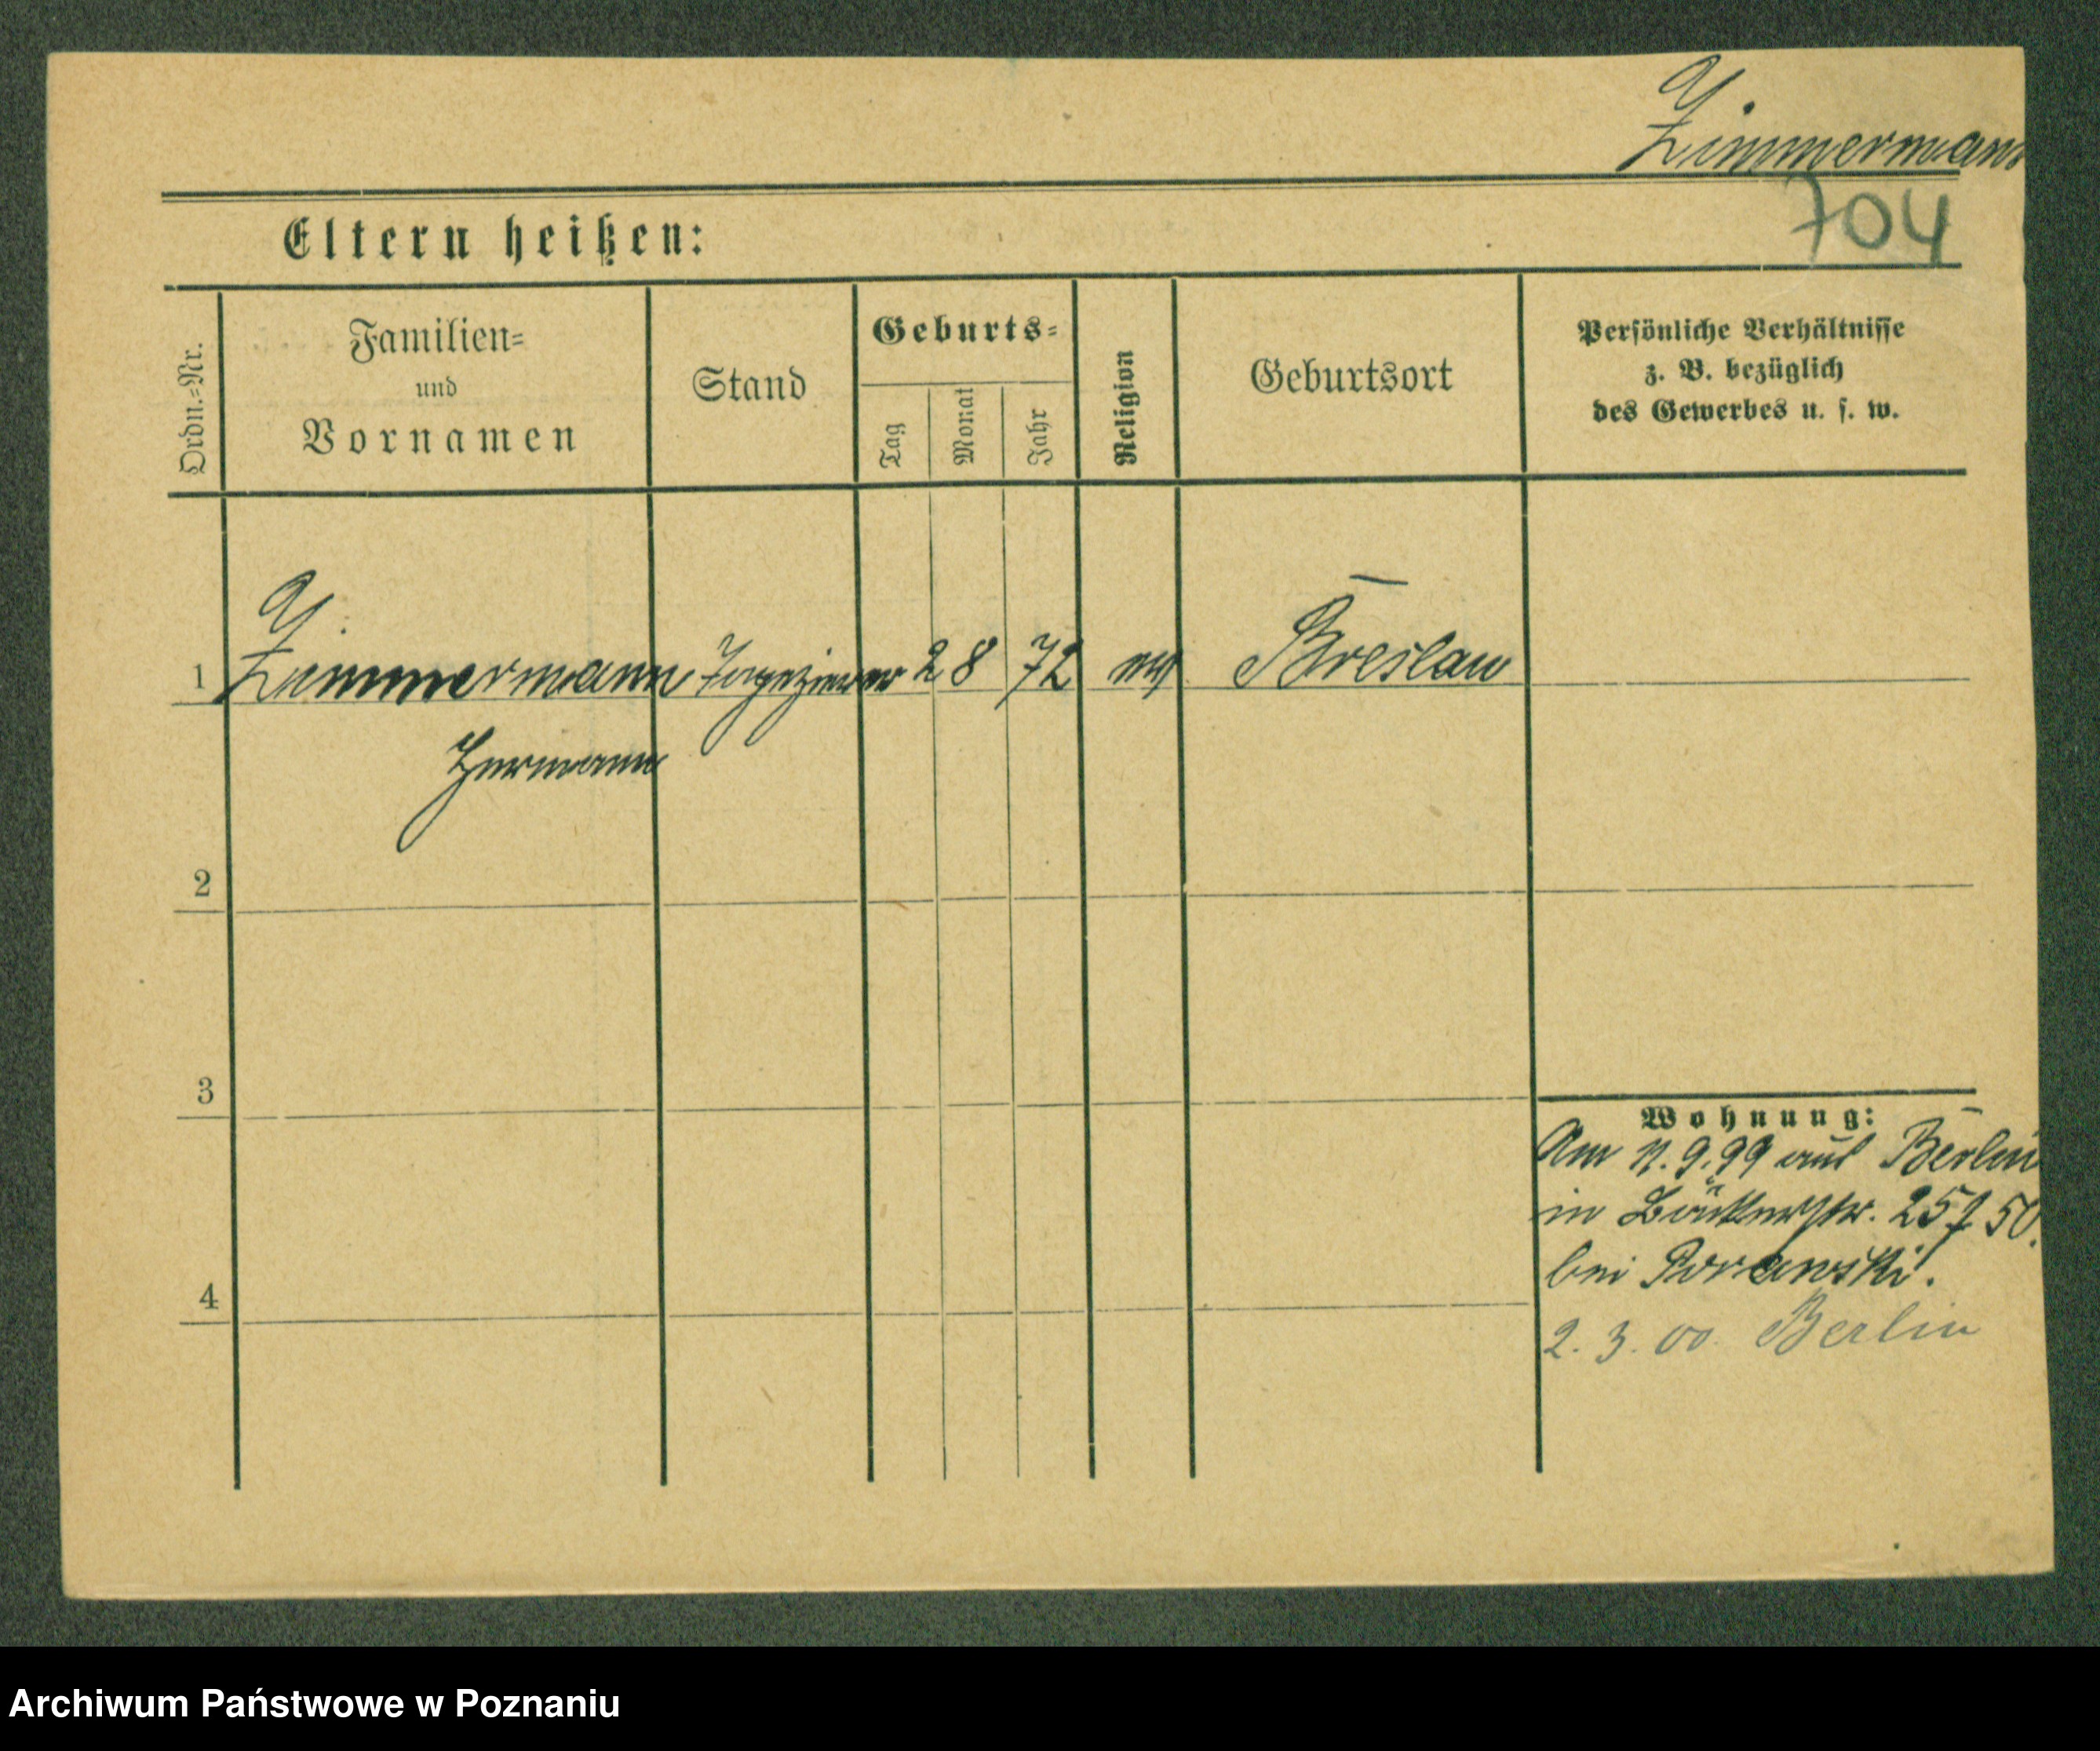 Zimmermann
704
Eltern heißen:
Ordn.=Nr.
Familien=
und
Vornamen
Stand
Geburts=
Tag
Monat
Jahr
Religion
Geburtsort
Persönliche Verhältnisse
z. B. bezüglich
des Gewerbes u. s. w.
1 Zimmermann Tapezierer 2 8 72 Breslau
Hermann
2
3
4
Wohnung:
Am 11.9.99 aus Berlin
in 25
bei
2. 3. 00. Berlin
Archiwum Państwowe w Poznaniu